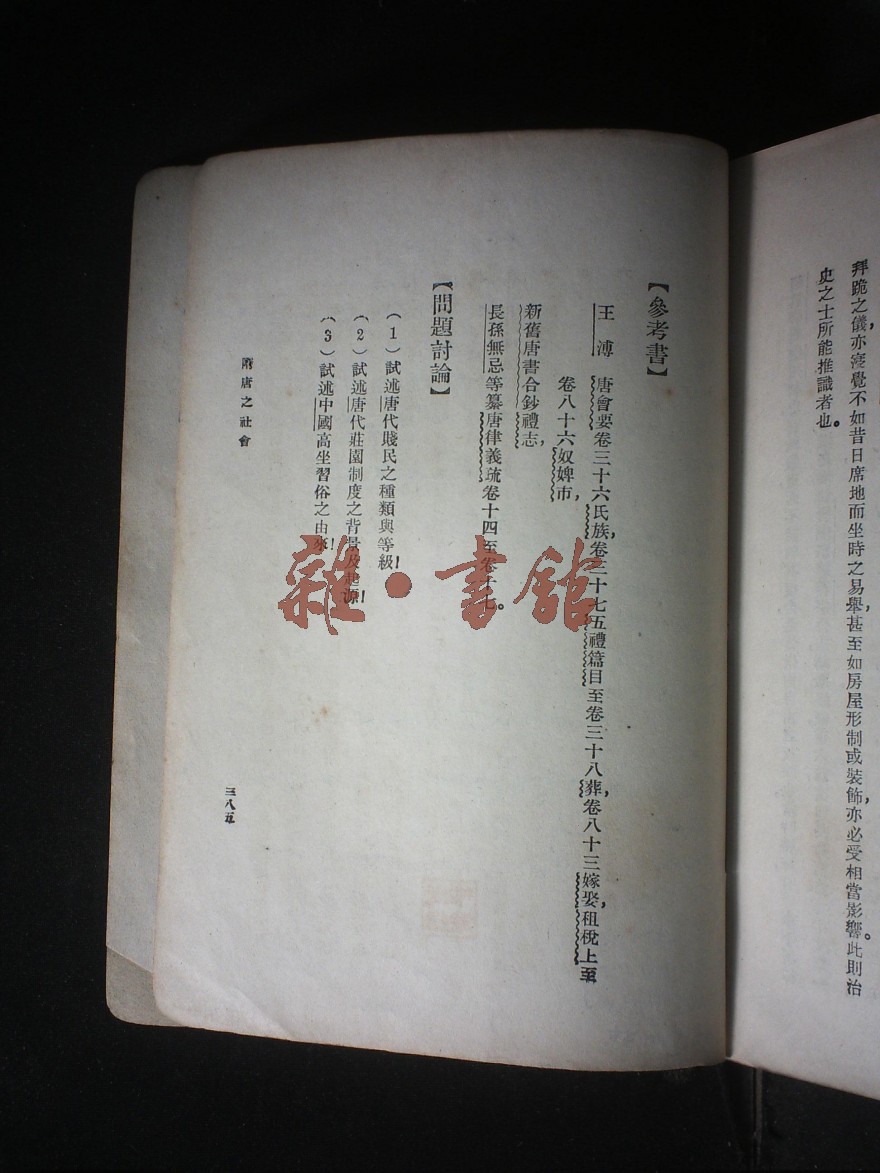 拜跪之儀，亦寖覺不如昔日席地而坐時之易舉，甚至如房屋形制或裝飾，亦必受相當影響。此則治
史之士所能推識者也。
【參考書】
王溥　唐會要卷三十六氏族，卷三十七五禮篇目至卷三十八葬，卷八十三嫁娶，租稅上至
卷八十六奴婢市，
新舊唐書合鈔禮志，
長孫無忌等纂唐律義疏卷十四至卷十七。
【問題討論】
（1）試述唐代賤民之種類與等級！
（2）試述唐代莊園制度之背景及起源！
（3）試述中國高坐習俗之由來！
隋唐之社會
三八五
雜·書館